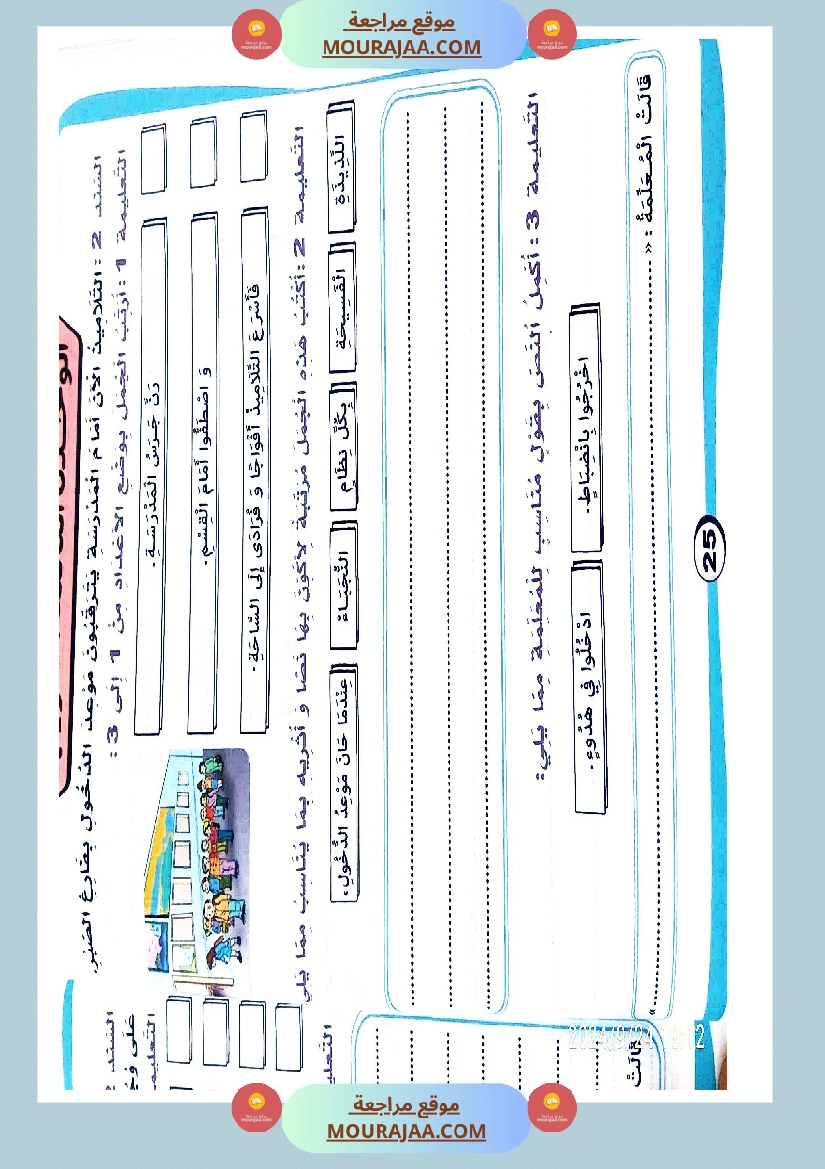 موقع مراجعة
MOURAJAA.COM
السند 2 : التلاميذ الآن أمام المدرسة يترقبون موعد الدخول بفارغ الصبر.
التعليمة 1 : أرتب الجمل بوضع الأعداد من 1 إلى 3 :
رَنَّ جَرَسُ الْمَدْرَسَةِ.
وَ اصْطَفُّوا أَمَامَ الْقِسْمِ.
فَأَسْرَعَ التَّلَامِيذُ أَفْوَاجًا وَ فُرَادَى إِلَى السَّاحَةِ.
التعليمة 2 : أكتب هذه الجمل مرتبة لأكون بها نصا و أثريه بما يناسب مما يلي
اللَّذِيذَةِ
الْفَسِيحَةِ
بِكُلِّ نِظَامٍ
النُّجَبَاءُ
عِنْدَمَا حَانَ مَوْعِدُ الدُّخُولِ،
التعليمة 3 : أكمل النص بقول مناسب للمعلمة مما يلي:
اخْرُجُوا بِانْضِبَاطٍ.
ادْخُلُوا فِي هُدُوءٍ.
قَالَتْ الْمُعَلِّمَةُ : « »
25
السند
على
التعليمة
قالت
موقع مراجعة
MOURAJAA.COM